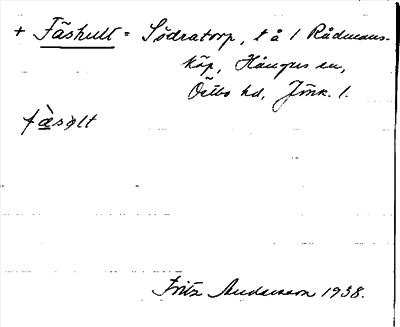 + Fäshult = Södratorp, t å 1 Rådmans-
köp, Hångers sn,
Östbo hd, Jönk. l.
fὰsɷlt
Fritz Andersson 1938.